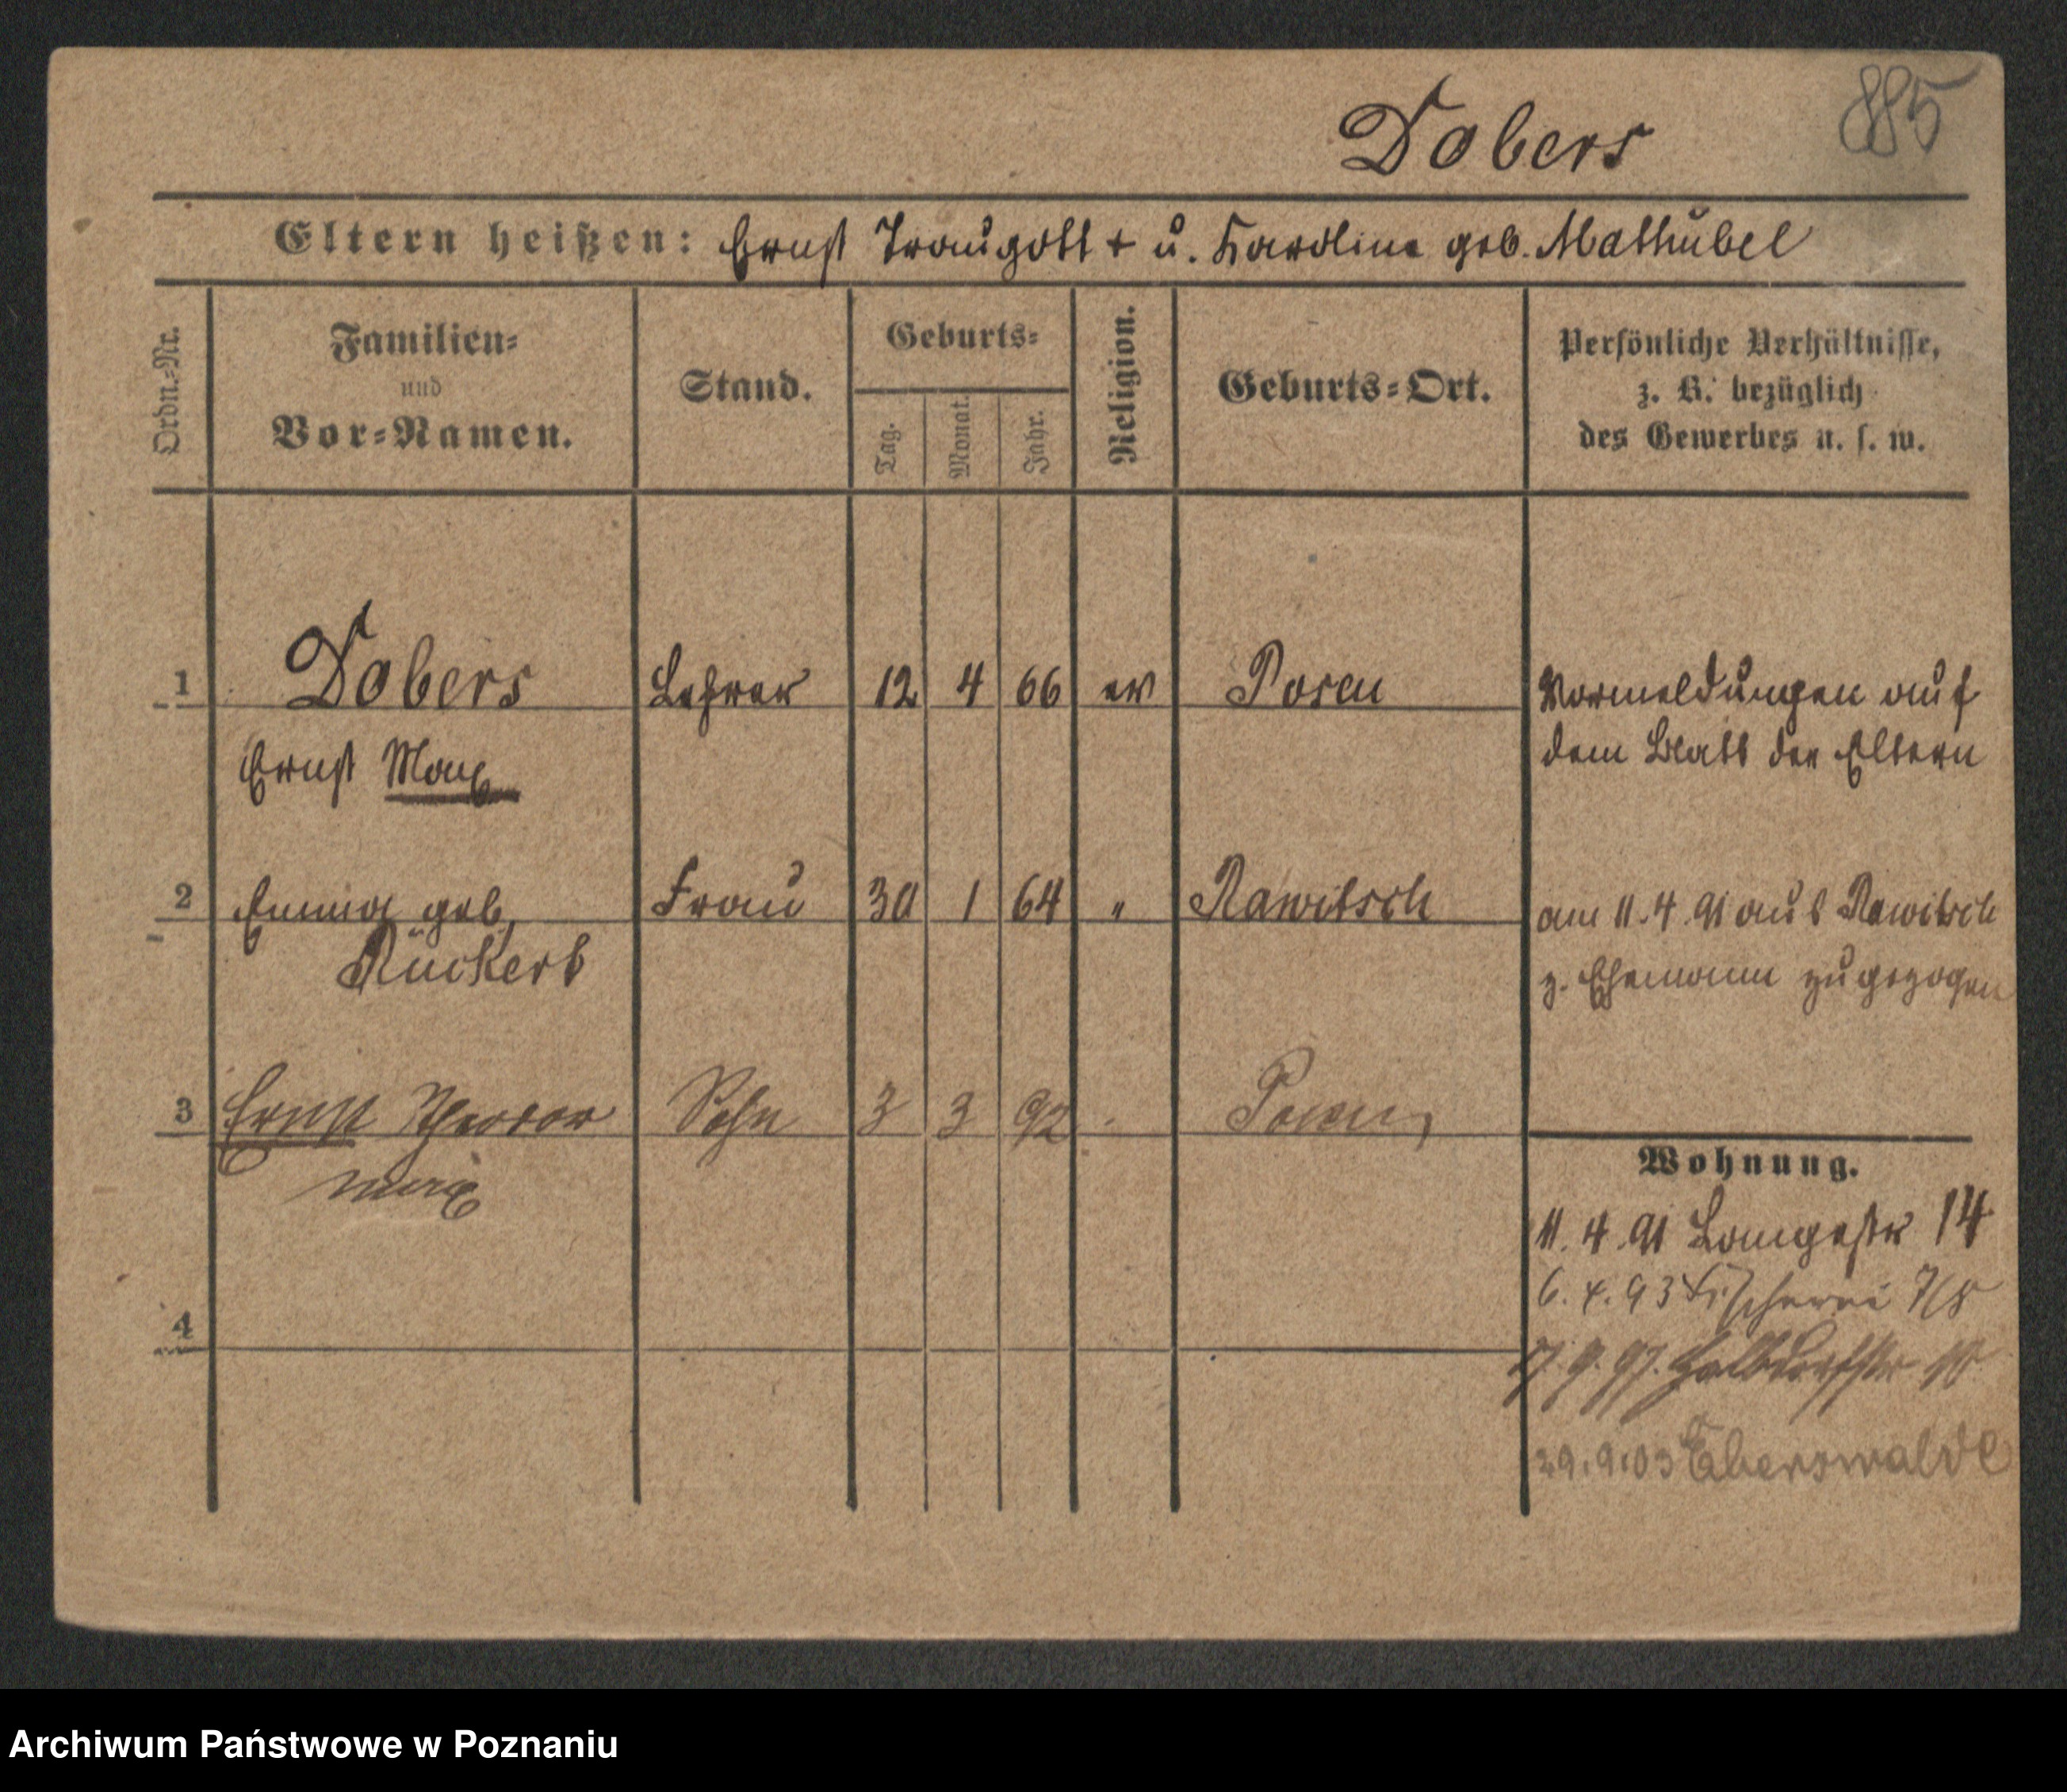 885
Dobers
Eltern heißen: Ernst Traugott + u. Karoline geb. Mathübel
Ordn.-Nr.
Familien-
und
Vor-Namen.
Stand.
Geburts-
Tag.
Monat.
Jahr.
Religion.
Geburts-Ort.
Persönliche Verhältnisse,
z. B. bezüglich
des Gewerbes u. s. w.
1 Dobers Lehrer 12 4 66 ev Posen Vormeldungen auf
Ernst Max dem Blatt der Eltern
2 Emma geb. Frau 30 1 64 " Rawitsch am 11.4.91 aus Rawitsch
Rückert z. Ehemann zugezogen
3 Ernst Theodor Sohn 3 3 92 Posen
Max
Wohnung.
11.4.91 Langestr 14
6.4.93 Fischerei 7/8
4
7.9.97. Halbdorfstr
29.9.03 Eberswalde
Archiwum Państwowe w Poznaniu